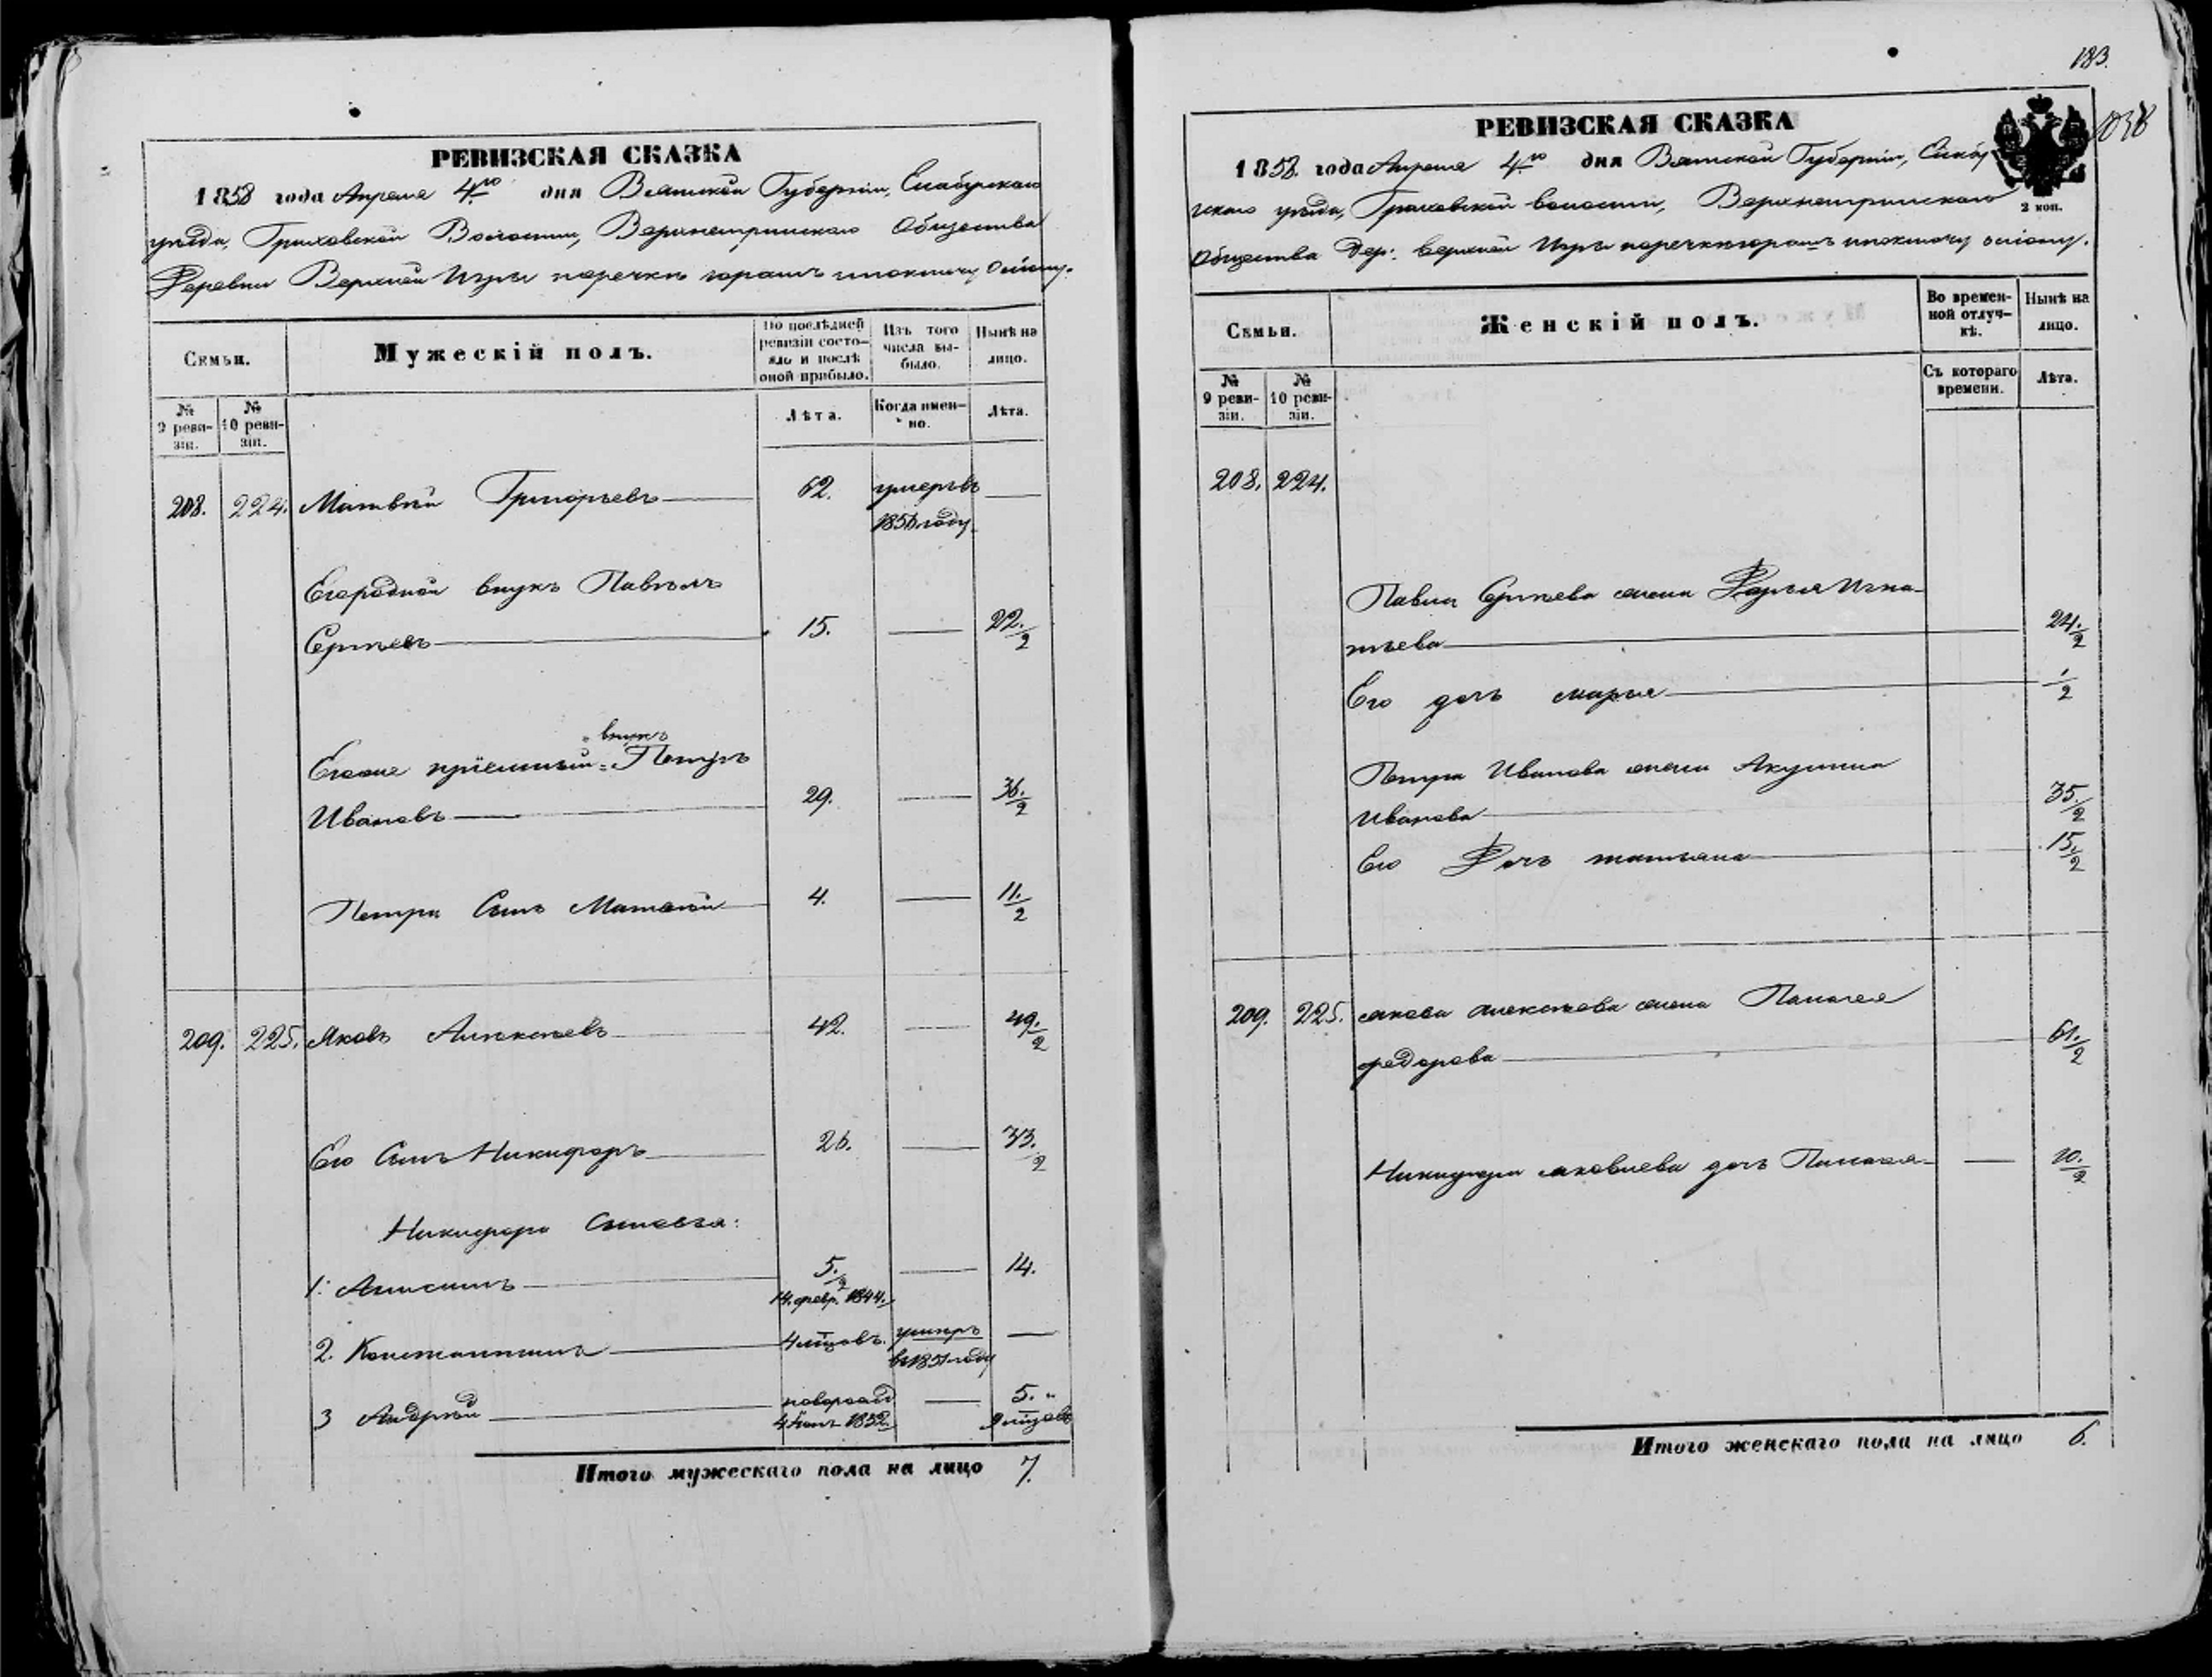 РЕВИЗСКАЯ СКАЗКА
1858 года Апреля 4го дня Вятской Губернии, Елабужскаго
уѣзда, Граховской Волости, Верхнеигринскаго Общества
Деревни Верхней Игры поречкѣ
Семьи.
Мужескій полъ.
По послѣдней ревизіи состо-
яло и послѣ оной прибыло.
Изъ того числа вы-
было.
Нынѣ на лицо.
№ 9 реви-
зіи.
№ 10 реви-
зіи.
Лѣта.
Когда имен-
но.
Лѣта.
208. 224. Матвѣй Григорьевъ 62. умеръ въ
году
Его родной внукъ Павелъ
Сергѣевъ 15. — 22./2
внукъ
Егоже пріемный Петръ
Ивановъ 29. — 36./2
Петра Сынъ Матвѣй 4. — 11./2
209. 225. Яковъ Алексѣевъ 42. — 49./2
Его Сынъ Никифоръ 26. — 33./2
Никифора Сыновья:
1. Анисимъ 5./2 — 14.
14. февр. 1844.
2. Константинъ 4 мѣсцовъ. умеръ —
въ 1851 году
3 Андрей новорожд — 5. "
1852. 9 мѣсцовъ
Итого мужескаго пола на лицо 7.
183.
1038
РЕВИЗСКАЯ СКАЗКА
1858. года Апреля 4го дня Вятской Губерніи, Елабуж
скаго уѣзда, Граховской волости, Верхнеигринскаго
2 коп.
Общества Дер. верхней Игры поречкѣ
Семьи.
Женскій полъ.
Во времен-
ной отлуч-
кѣ.
Нынѣ на
лицо.
№ 9 реви-
зіи.
№ 10 реви-
зіи.
Съ котораго
времени.
Лѣта.
208. 224.
Павла Сергѣева жена Дарья Игна-
тьева 24./2
Его дочь марья 1/2
Петра Иванова жена Акулина
Иванова 35./2
Его Дочь татьяна 15./2
209. 225. якова алексѣева жена Палагея
федорова 61./2
Никифора яковлева дочь Палагея — 10./2
Итого женскаго пола на лицо 6.